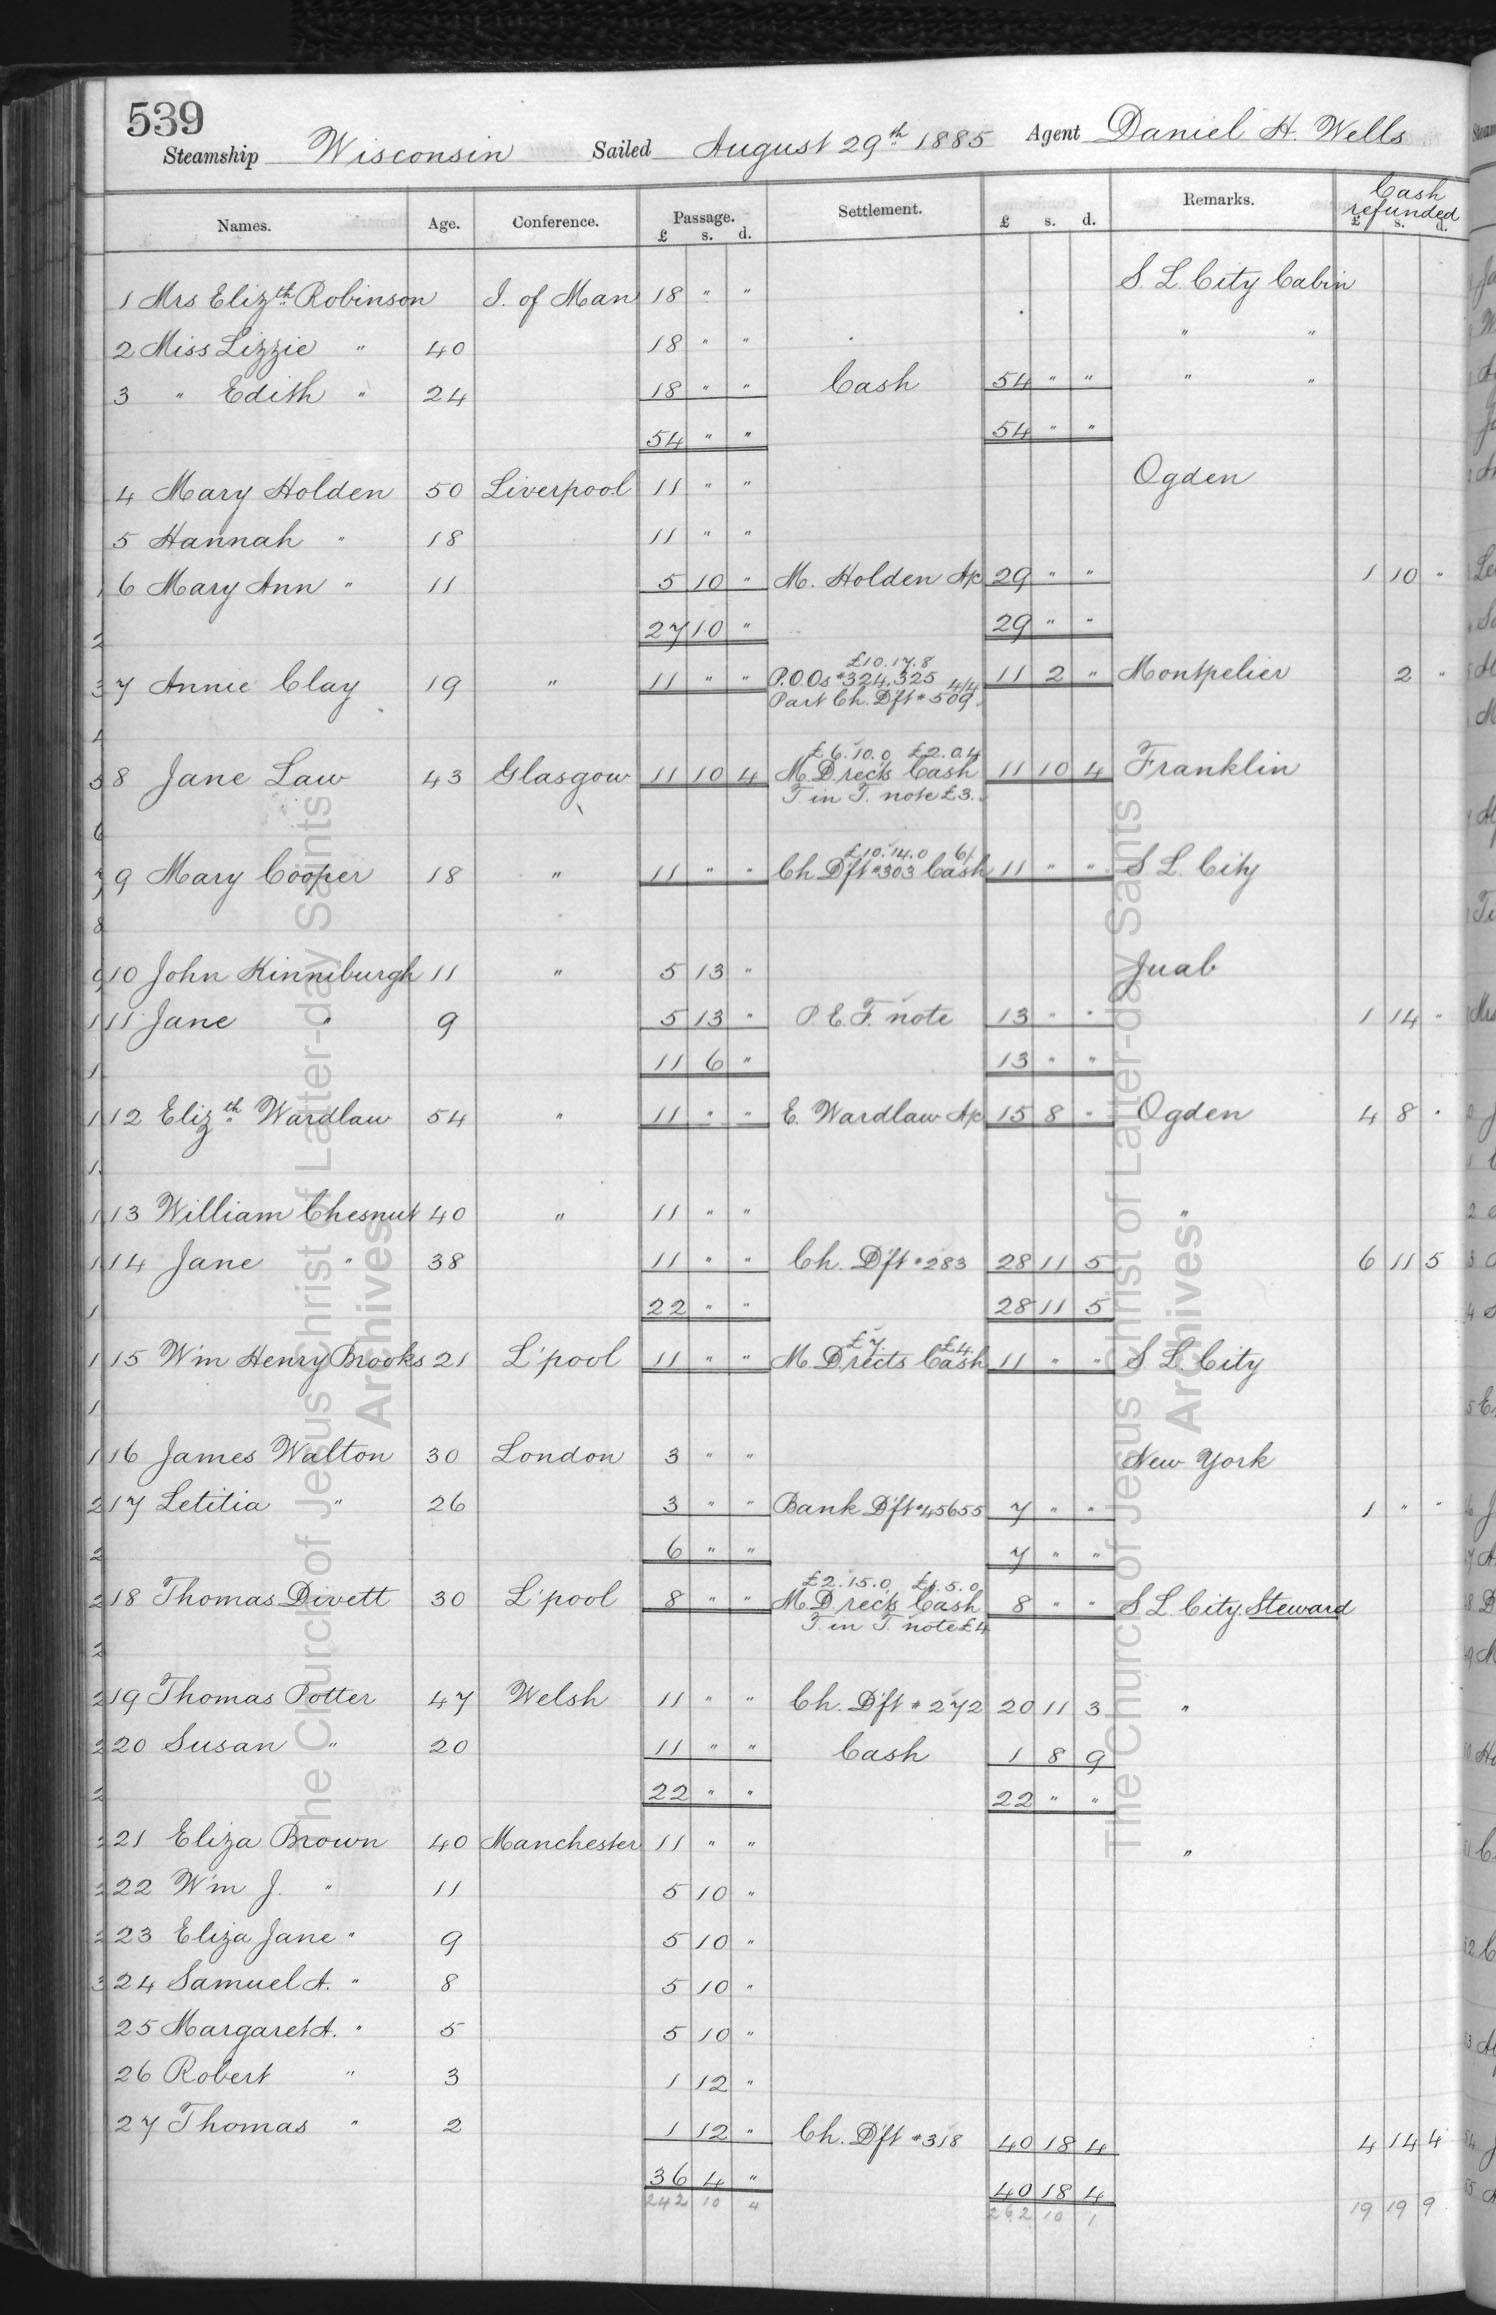 539
Steamship Wisconsin Sailed August 29th 1885 Agent Daniel H. Wells
Names. Age. Conference. Passage. £ s. d. Settlement. £ s. d. Remarks. Cash refunded £ s. d.
1 Mrs Elizth Robinson I. of Man 18 " " S. L. City Cabin
2 Miss Lizzie " 40 18 " " " "
3 " Edith " 24 18 " " Cash 54 " " " "
54 " " 54 " "
4 Mary Holden 50 Liverpool 11 " " Ogden
5 Hannah " 18 11 " "
6 Mary Ann " 11 5 10 " M. Holden A/c 29 " " 1 10 "
27 10 " 29 " "
£10.17.8
7 Annie Clay 19 " 11 " " P.O.Os #324.325 4/4 11 2 " Montpelier 2 "
Part Ch. Dft # 509
£6.10.0 £2.0.4
8 Jane Law 43 Glasgow 11 10 4 M.D rects Cash 11 10 4 Franklin
T in T. note £3.
£10.14.0 6/
9 Mary Cooper 18 " 11 " " Ch Dft #303 Cash 11 " " S L. City
10 John Kinniburgh 11 " 5 13 " Juab
11 Jane " 9 5 13 " P. E. F. note 13 " " 1 14 "
11 6 " 13 " "
12 Elizth Wardlaw 54 " 11 " " E. Wardlaw A/c 15 8 " Ogden 4 8 "
13 William Chesnut 40 " 11 " " "
14 Jane " 38 11 " " Ch. Dft #283 28 11 5 6 11 5
22 " " 28 11 5
£7. £4
15 Wm Henry Brooks 21 L'pool 11 " " M.D rects Cash 11 " " S L. City
16 James Walton 30 London 3 " " New York
17 Letitia " 26 3 " " Bank Dft #45655 7 " " 1 " "
6 " " 7 " "
£2.15.0 £1.5.0
18 Thomas Divett 30 L'pool 8 " " M.D rects Cash 8 " " S L. City. Steward
T. in T. note £4
19 Thomas Potter 47 Welsh 11 " " Ch. Dft # 272 20 11 3 "
20 Susan " 20 11 " " Cash 1 8 9
22 " " 22 " "
21 Eliza Brown 40 Manchester 11 " " "
22 Wm J. " 11 5 10 "
23 Eliza Jane " 9 5 10 "
24 Samuel A. " 8 5 10 "
25 Margaret A. " 5 5 10 "
26 Robert " 3 1 12 "
27 Thomas " 2 1 12 " Ch. Dft #318 40 18 4 4 14 4
36 4 " 40 18 4
242 10 4 262 10 1 19 19 9
The Church of Jesus Christ of Latter-day Saints
Archives
The Church of Jesus Christ of Latter-day Saints
Archives